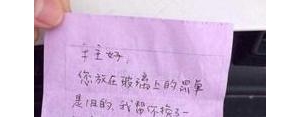 车主好,
您放在玻璃上的罚单
是旧的,我替你换了一